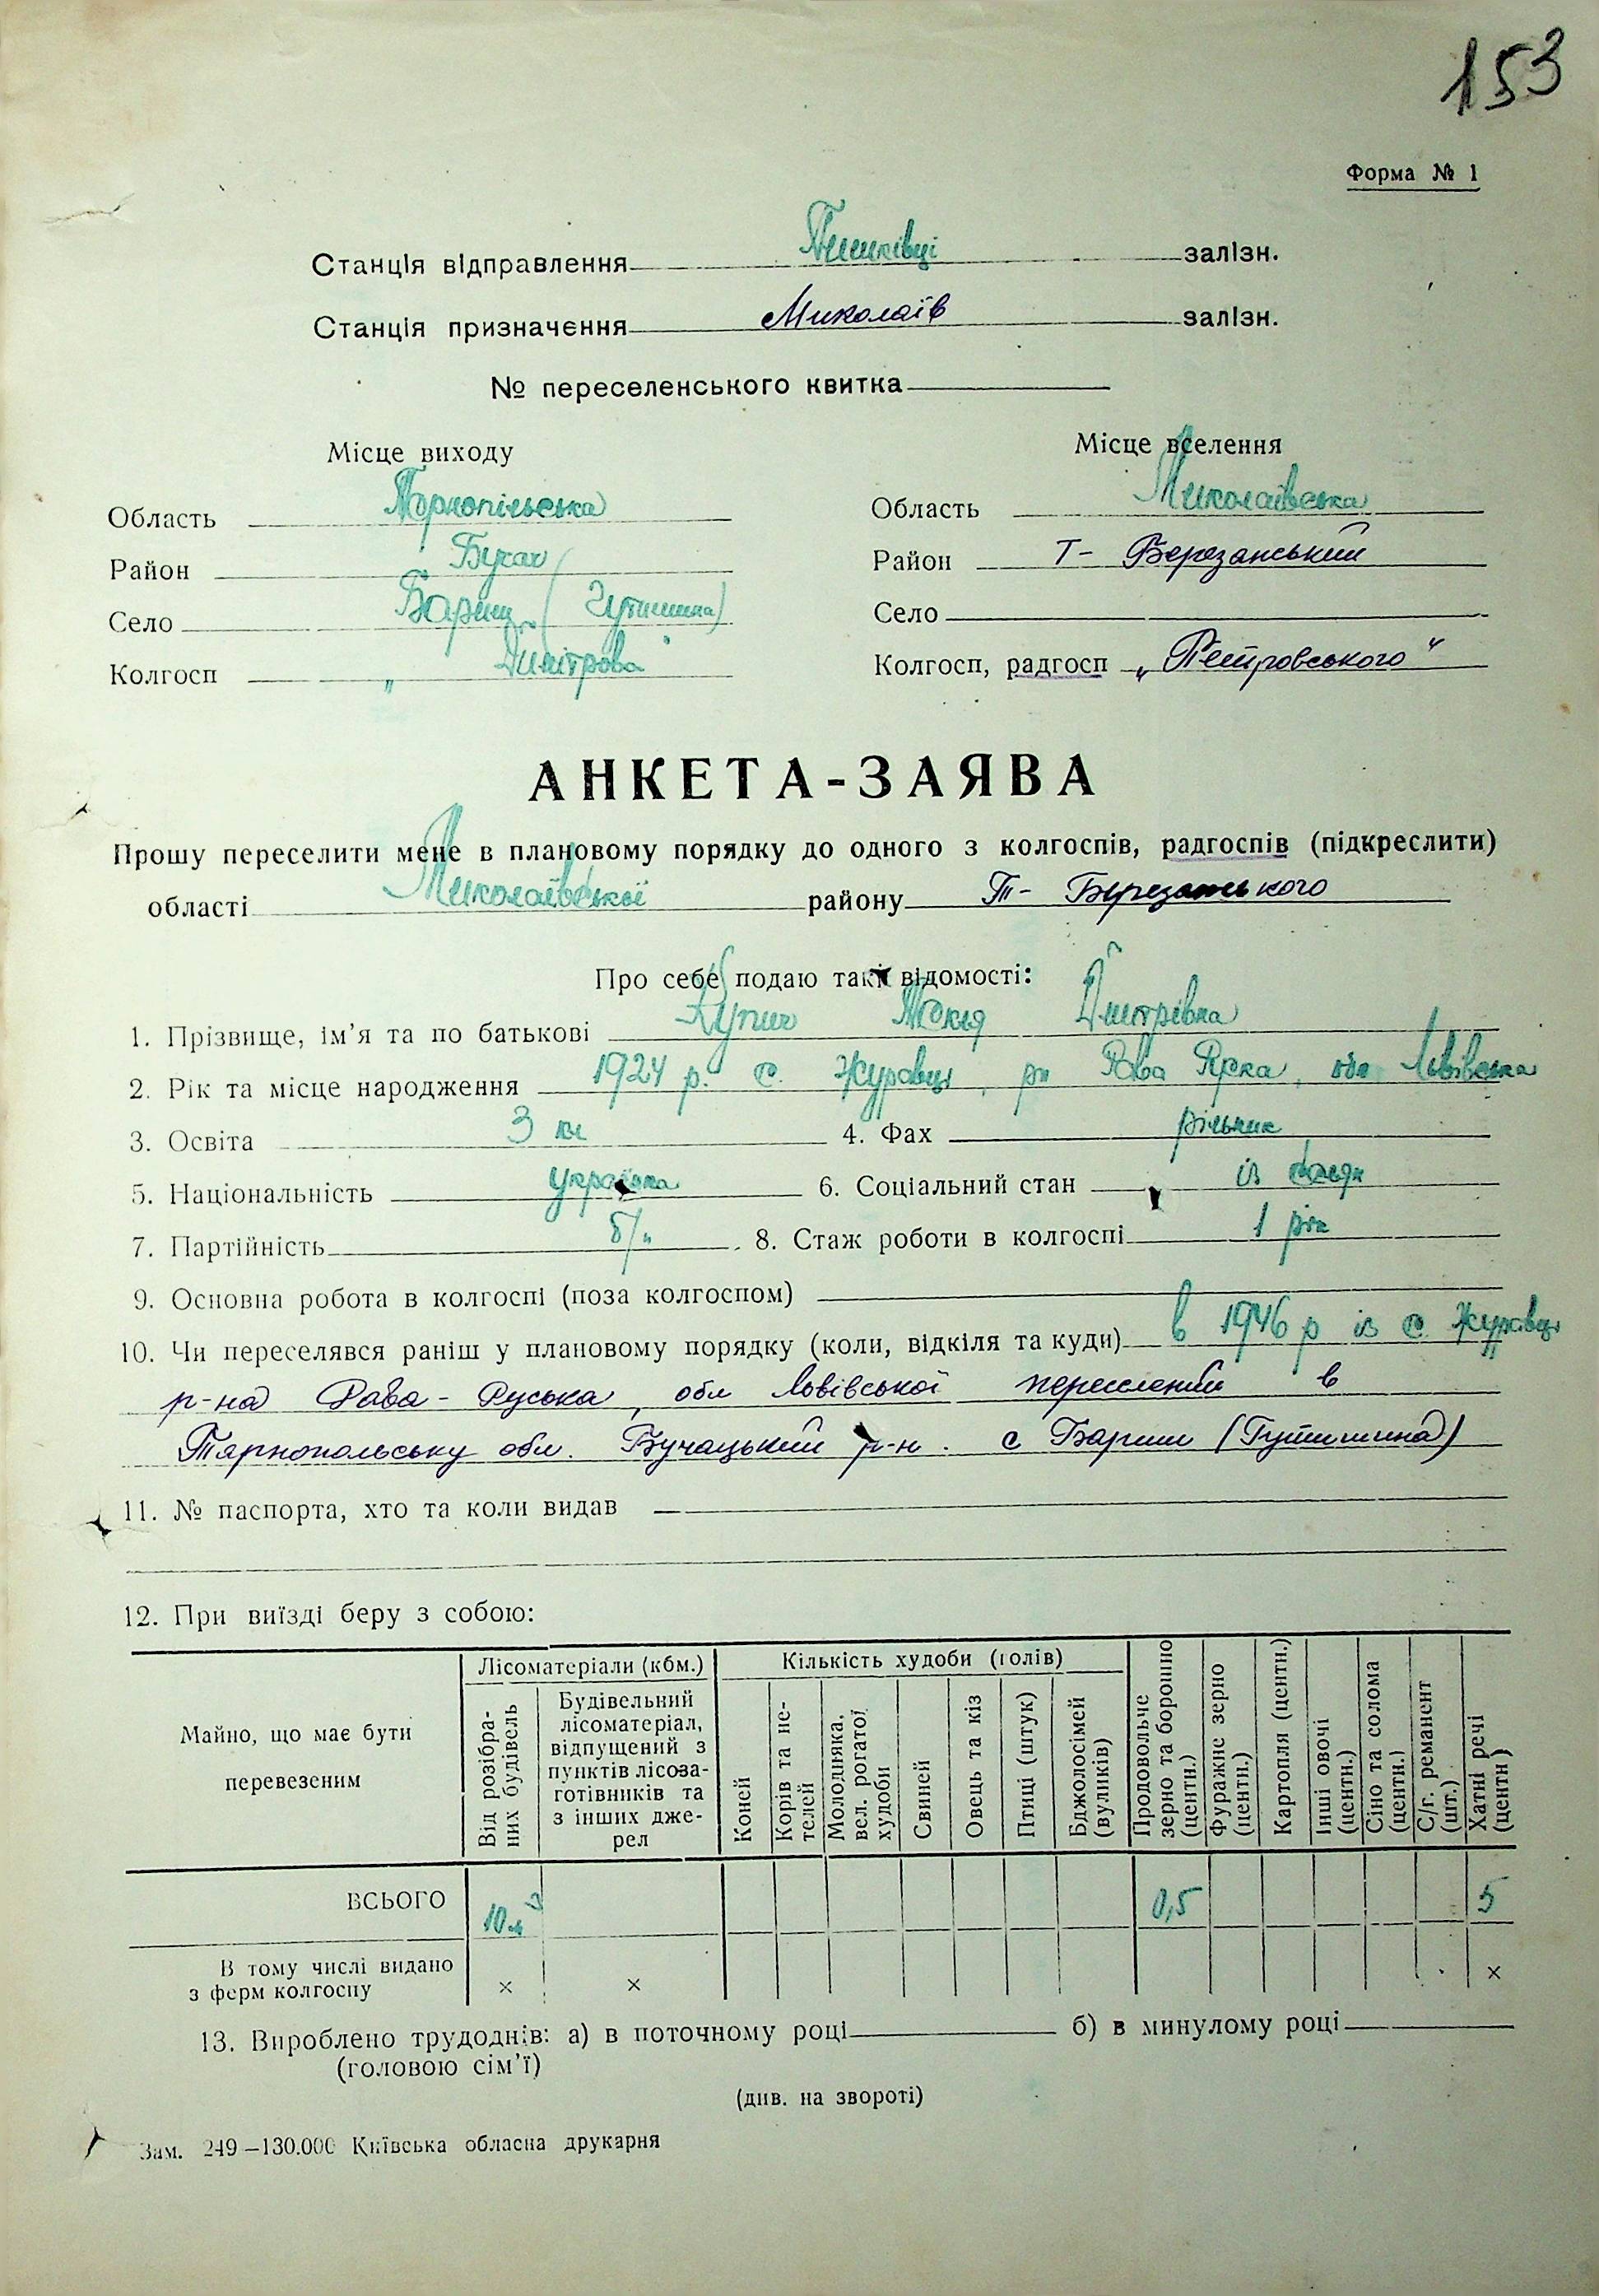 153
Форма № 1
Станція відправлення Пишківці залізн.
Станція призначення Миколаїв залізн.
№ переселенського квитка
Місце виходу
Область Тернопільська
Район Бучач
Село Бариш (Гутишина)
Колгосп „Димітрова"
Місце вселення
Область Миколаївська
Район Т- Березанський
Село
Колгосп, радгосп „Петровського"
АНКЕТА-ЗАЯВА
Прошу переселити мене в плановому порядку до одного з колгоспів, радгоспів (підкреслити)
області Миколаївської району Т- Березанського
Про себе подаю такі відомості:
1. Прізвище, ім'я та по батькові Дмитрівна
2. Рік та місце народження 1924 р. с. Журавці, рн Рава Руска, обл Львівська
3. Освіта 3 кл 4. Фах рільник
5. Національність українка 6. Соціальний стан із селян
7. Партійність б/п 8. Стаж роботи в колгоспі 1 рік
9. Основна робота в колгоспі (поза колгоспом)
10. Чи переселявся раніш у плановому порядку (коли, відкіля та куди) в 1946 р із с. Журавці
р-на Рава-Руська, обл Львівської переселений в
Тярнопольську обл. Бучацький р-н. с Бариш (Гутишина)
11. № паспорта, хто та коли видав
12. При виїзді беру з собою:
Майно, що має бути перевезеним
Лісоматеріали (кбм.)
Від розібраних будівель
Будівельний лісоматеріал, відпущений з пунктів лісозаготівників та з інших джерел
Кількість худоби (голів)
Коней
Корів та нетелей
Молодняка, вел. рогатої худоби
Свиней
Овець та кіз
Птиці (штук)
Бджолосімей (вуликів)
Продовольче зерно та борошно (центн.)
Фуражне зерно (центн.)
Картопля (центн.)
Інші овочі (центн.)
Сіно та солома (центн.)
С/г. реманент (шт.)
Хатні речі (центн)
ВСЬОГО 10 м³ 0,5 5
В тому числі видано з ферм колгоспу × × ×
13. Вироблено трудоднів: а) в поточному році б) в минулому році
(головою сім'ї)
(див. на звороті)
Зам. 249—130.000 Київська обласна друкарня